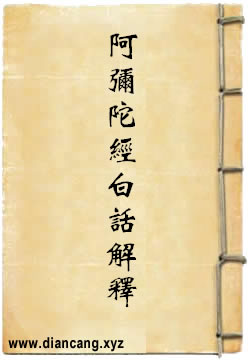 阿彌陀經白話解釋
www.diancang.xyz